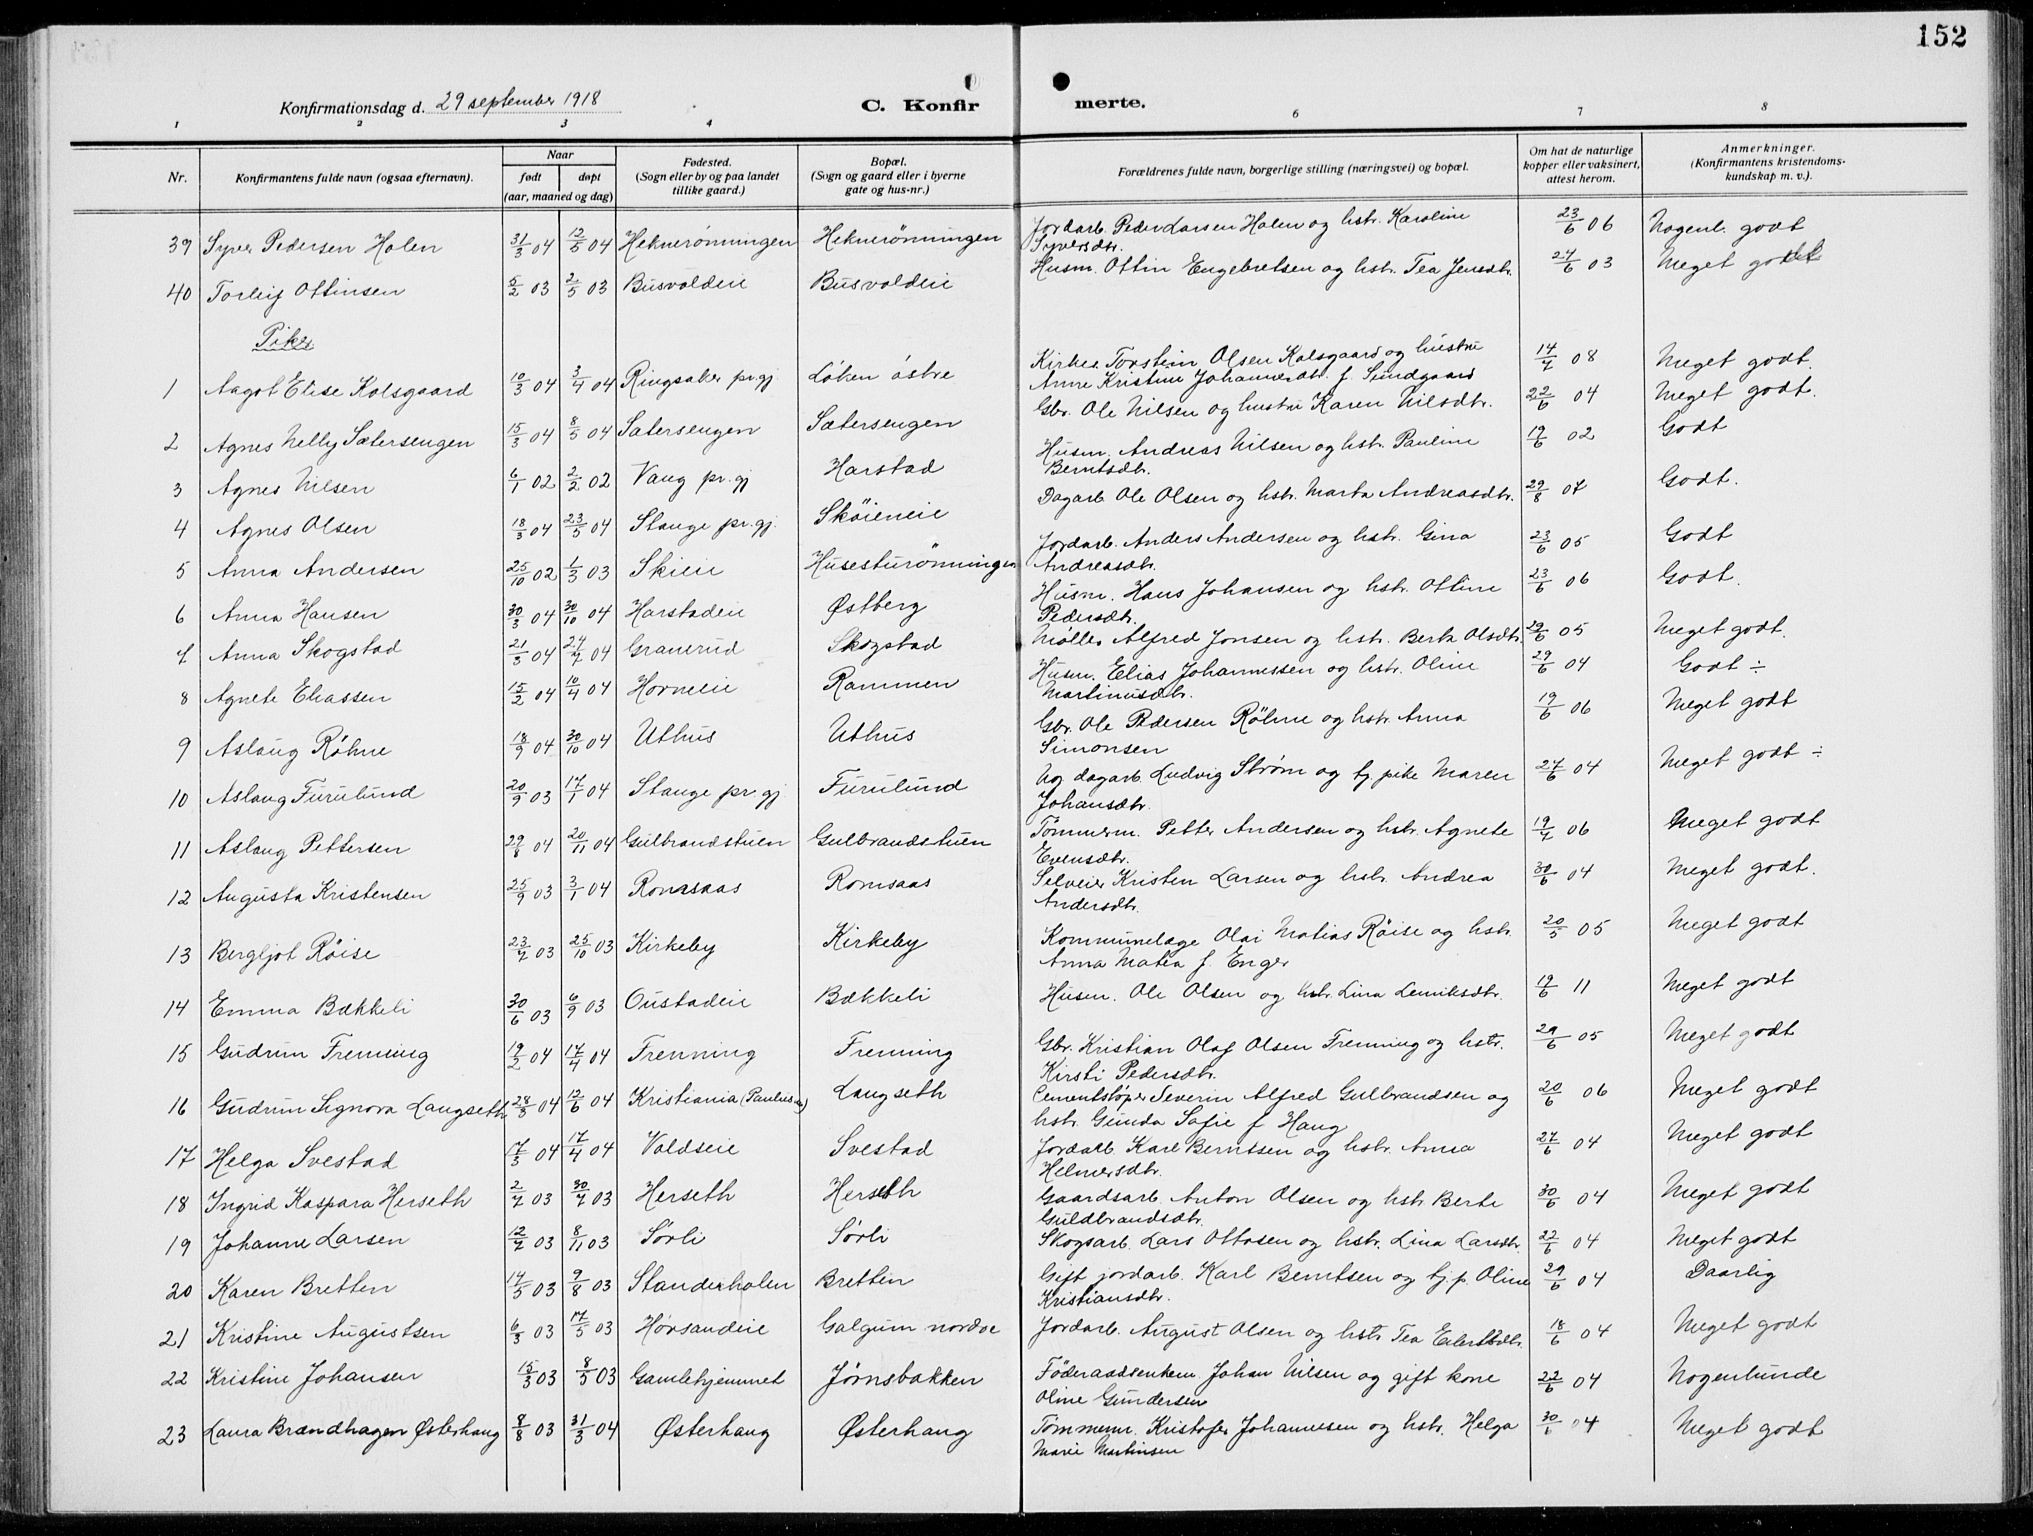 152
Konfirmationsdag d. 29 september 1918
C. Konfir merte.
1 2 3 4 6 7 8
Nr. Konfirmantens fulde navn (ogsaa efternavn). Naar født døpt (aar, maaned og dag) Fødested. (Sogn eller by og paa landet tillike gaard.) Bopæl. (Sogn og gaard eller i byerne gate og hus-nr.) Forældrenes fulde navn, borgerlige stilling (næringsvei) og bopæl. Om hat de naturlige kopper eller vaksinert, attest herom. Anmerkninger. (Konfirmantens kristendoms-kundskap m. v.).
39 Syver Pedersen Holen 31/3 04 12/5 04 Heknerönningen Heknerönningen Jordarb. Peder Larsen Holen og hstr. Karoline Syversdtr. 23/6 06 Nogenl. godt
40 Torleif Ottinsen 5/2 03 2/5 03 Busvoldeie Busvoldeie Husm. Ottin Engebretsen og hstr. Tea Jensdtr. 27/6 03 Meget godt
Piker
1 Aagot Elise Kolsgaard 10/3 04 3/4 04 Ringsaker pr.gj Løken östre Kirkes. Torstein Olsen Kolsgaard og hustru Anne Kristine Johannesdtr. f. Sundgaard 14/7 08 Meget godt.
2 Agnes Nelly Sætersengen 15/3 04 8/5 04 Sætersengen Sætersengen Gbr. Ole Nilsen og hustru Karen Nilsdtr. 22/6 04 Meget godt.
3 Agnes Nilsen 6/1 02 2/2 02 Vang pr.gj Harstad Husm. Andreas Nilsen og hstr. Pauline Berntsdtr. 19/6 02 Godt
4 Agnes Olsen 18/3 04 23/5 04 Stange pr.gj. Skøieneie Dagarb. Ole Olsen og hstr. Marta Andreasdtr. 29/8 07 Godt.
5 Anna Andersen 25/10 02 1/3 03 Skieie Husesturönningen Jordarb. Anders Andersen og hstr. Gina Andreasdtr. 23/6 05 Godt
6 Anna Hansen 30/3 04 30/10 04 Harstadeie Østberg Husm. Hans Johansen og hstr. Ottine Pedersdtr. 23/6 06 Godt.
7 Anna Skogstad 21/3 04 24/7 04 Granerud Skogstad Møller Alfred Jonsen og hstr. Berte Olsdtr. 29/6 05 Meget godt.
8 Agnete Eliassen 15/2 04 10/4 04 Horneeie Rammen Husm. Elias Johannessen og hstr. Oline Martinusdtr. 29/6 04 Godt ÷
9 Aslaug Røhne 18/9 04 30/10 04 Uthus Uthus Gbr. Ole Pedersen Röhne og hstr. Anna Simonsen 19/6 06 Meget godt
10 Aslaug Furulund 20/9 03 17/1 04 Stange pr.gj. Furulund Ug dagarb. Ludvig Strøm og tj. pike Maren Johansdtr. 27/6 04 Meget godt ÷
11 Aslaug Pettersen 29/8 04 20/11 04 Gulbrandstuen Gulbrandstuen Tømmerm. Petter Andersen og hstr. Agnete Evensdtr. 19/7 06 Meget godt
12 Augusta Kristensen 25/9 03 3/1 04 Romsaas Romsaas Selveier Kristen Larsen og hstr. Andrea Andersdtr. 30/6 04 Meget godt.
13 Bergljot Röise 23/7 03 25/10 03 Kirkeby Kirkeby Kommunelæge Olai Matias Røise og hstr. Anna Matea f. Enger 20/5 05 Meget godt
14 Emma Bækkeli 30/6 03 6/9 03 Oustadeie Bækkeli Husm. Ole Olsen og hstr. Lina Lemiksdtr. 19/6 11 Meget godt
15 Gudrun Frenning 19/2 04 17/4 04 Frenning Frenning Gbr. Kristian Olaf Olsen Frenning og hstr. Kirsti Pedersdtr. 29/6 05 Meget godt
16 Gudrun Signora Langseth 28/3 04 12/6 04 Kristiania (Paulus m) Langseth Cementstøper Severin Alfred Gulbrandsen og hstr. Gunda Sofie f Haug 20/6 06 Meget godt
17 Helga Svestad 17/3 04 17/4 04 Voldseie Svestad Jordarb. Karl Berntsen og hstr. Anna Helmersdtr. 27/6 04 Meget godt
18 Ingrid Kaspara Herseth 2/7 03 30/7 03 Herseth Herseth Gaardsarb. Anton Olsen og hstr. Berte Guldbrandsdtr. 30/6 04 Meget godt
19 Johanne Larsen 12/7 03 8/11 03 Sørli Sørli Skogsarb. Lars Ottosen og hstr. Lina Larsdtr. 22/6 04 Meget godt
20 Karen Bretten 14/5 03 9/8 03 Standerholen Brettin Gift jordarb. Karl Berntsen og tj.p. Oline Kristiansdtr. 29/6 04 Daarlig
21 Kristine Augustsen 6/3 03 17/5 03 Hørsandeie Galgum nordre Jordarb. August Olsen og hstr Tea Eilertsdtr. 18/6 04 Meget godt
22 Kristine Johansen 15/3 03 8/5 03 Gamlehjemmet Jørnsbakken Föderaadsenkem Johan Nilsen og gift kone Oline Gundersen 22/6 04 Nogenlunde
23 Laura Brændhagen Østerhaug 8/8 03 31/3 04 Østerhaug Østerhaug Tømmerm. Kristofer Johannesen og hstr. Helga Marie Martinsen 30/6 04 Meget godt